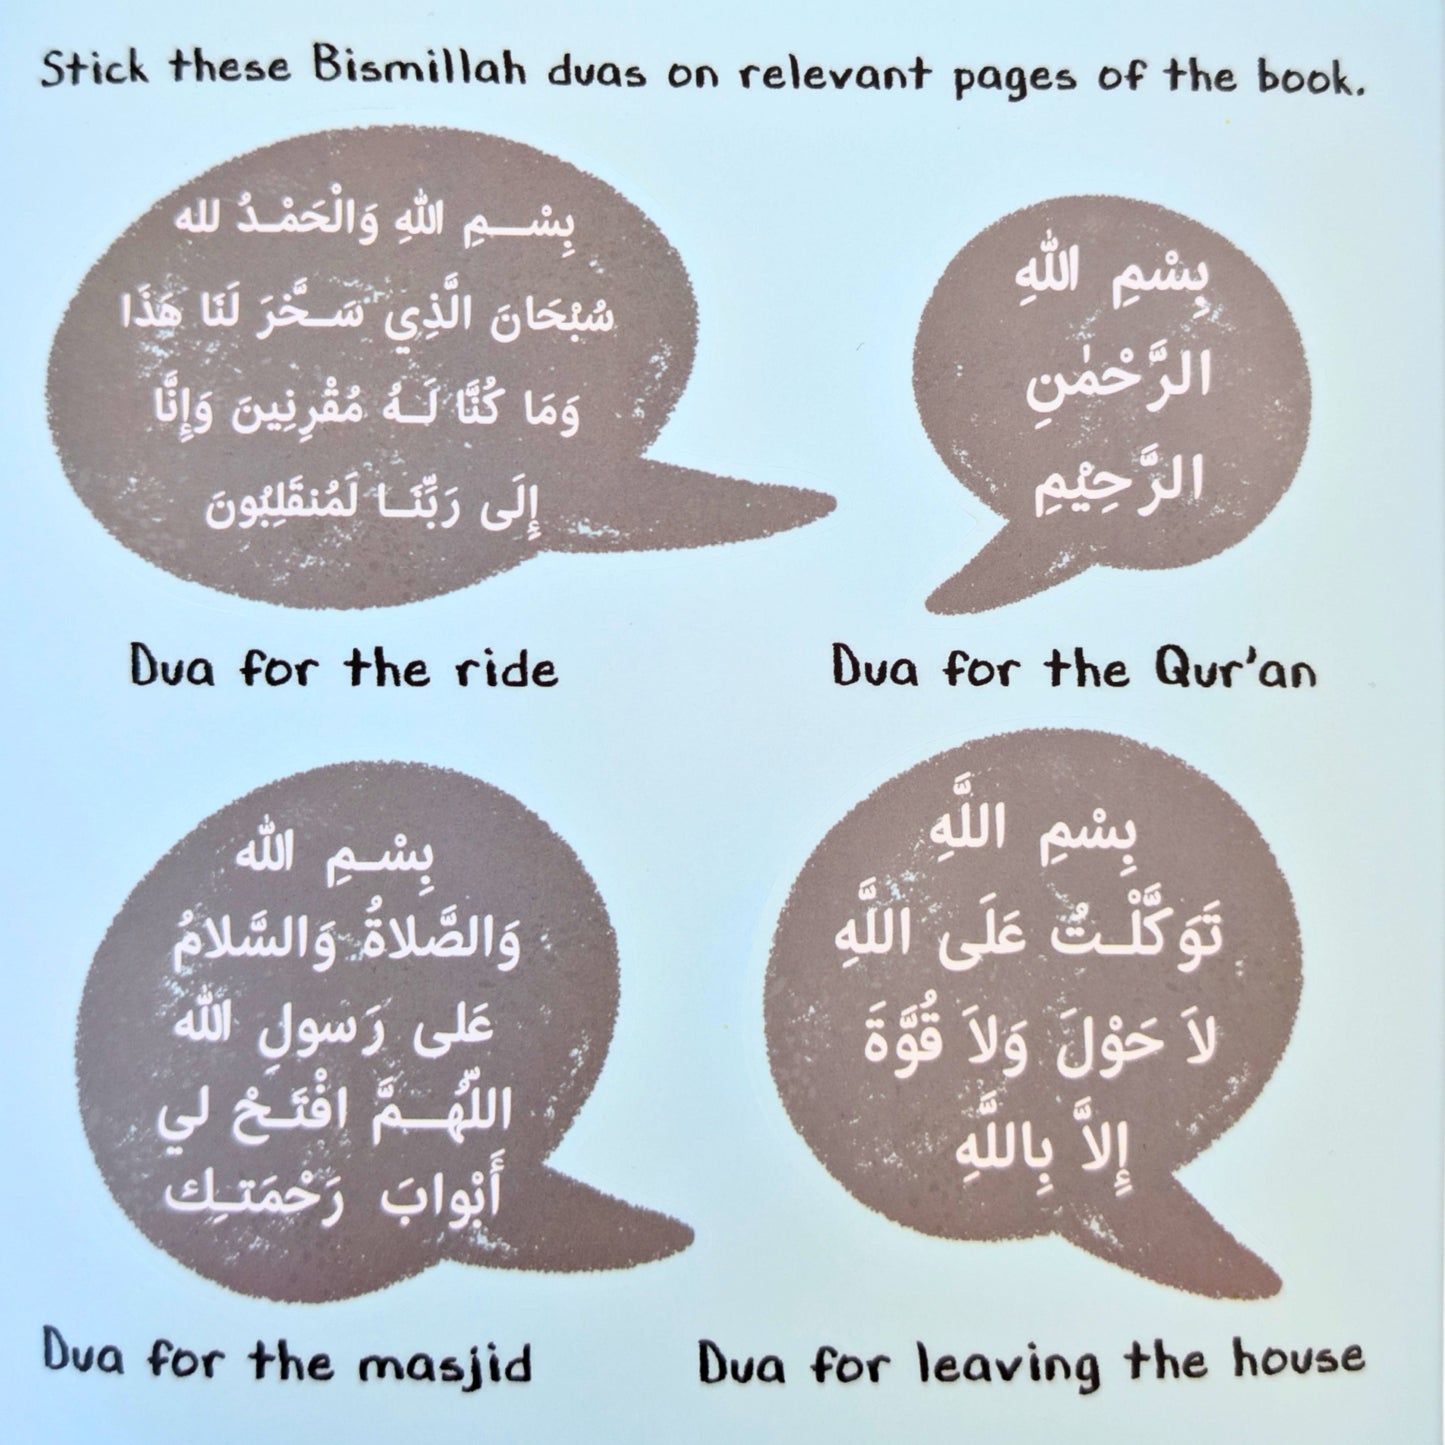 Stick these Bismillah duas on relevant pages of the book.
بِسْـــمِ اللهِ وَالْحَمْـدُ لله
سُبْحَانَ الَّذِي سَـخَّرَ لَنَا هَذَا
وَمَا كُنَّا لَـهُ مُقْرِنِينَ وَإِنَّا
إِلَى رَبِّنَـا لَمُنقَلِبُونَ
Dua for the ride
بِسْمِ اللهِ
الرَّحْمٰنِ
الرَّحِيْمِ
Dua for the Qur'an
بِسْـمِ الله
وَالصَّلاةُ وَالسَّلامُ
عَلى رَسولِ الله
اللّهُـــمَّ افْتَـحْ لي
أَبْوابَ رَحْمَتـِك
Dua for the masjid
بِسْمِ اللَّهِ
تَوَكَّلْـتُ عَلَى اللَّهِ
لاَ حَوْلَ وَلاَ قُوَّةَ
إِلاَّ بِاللَّهِ
Dua for leaving the house